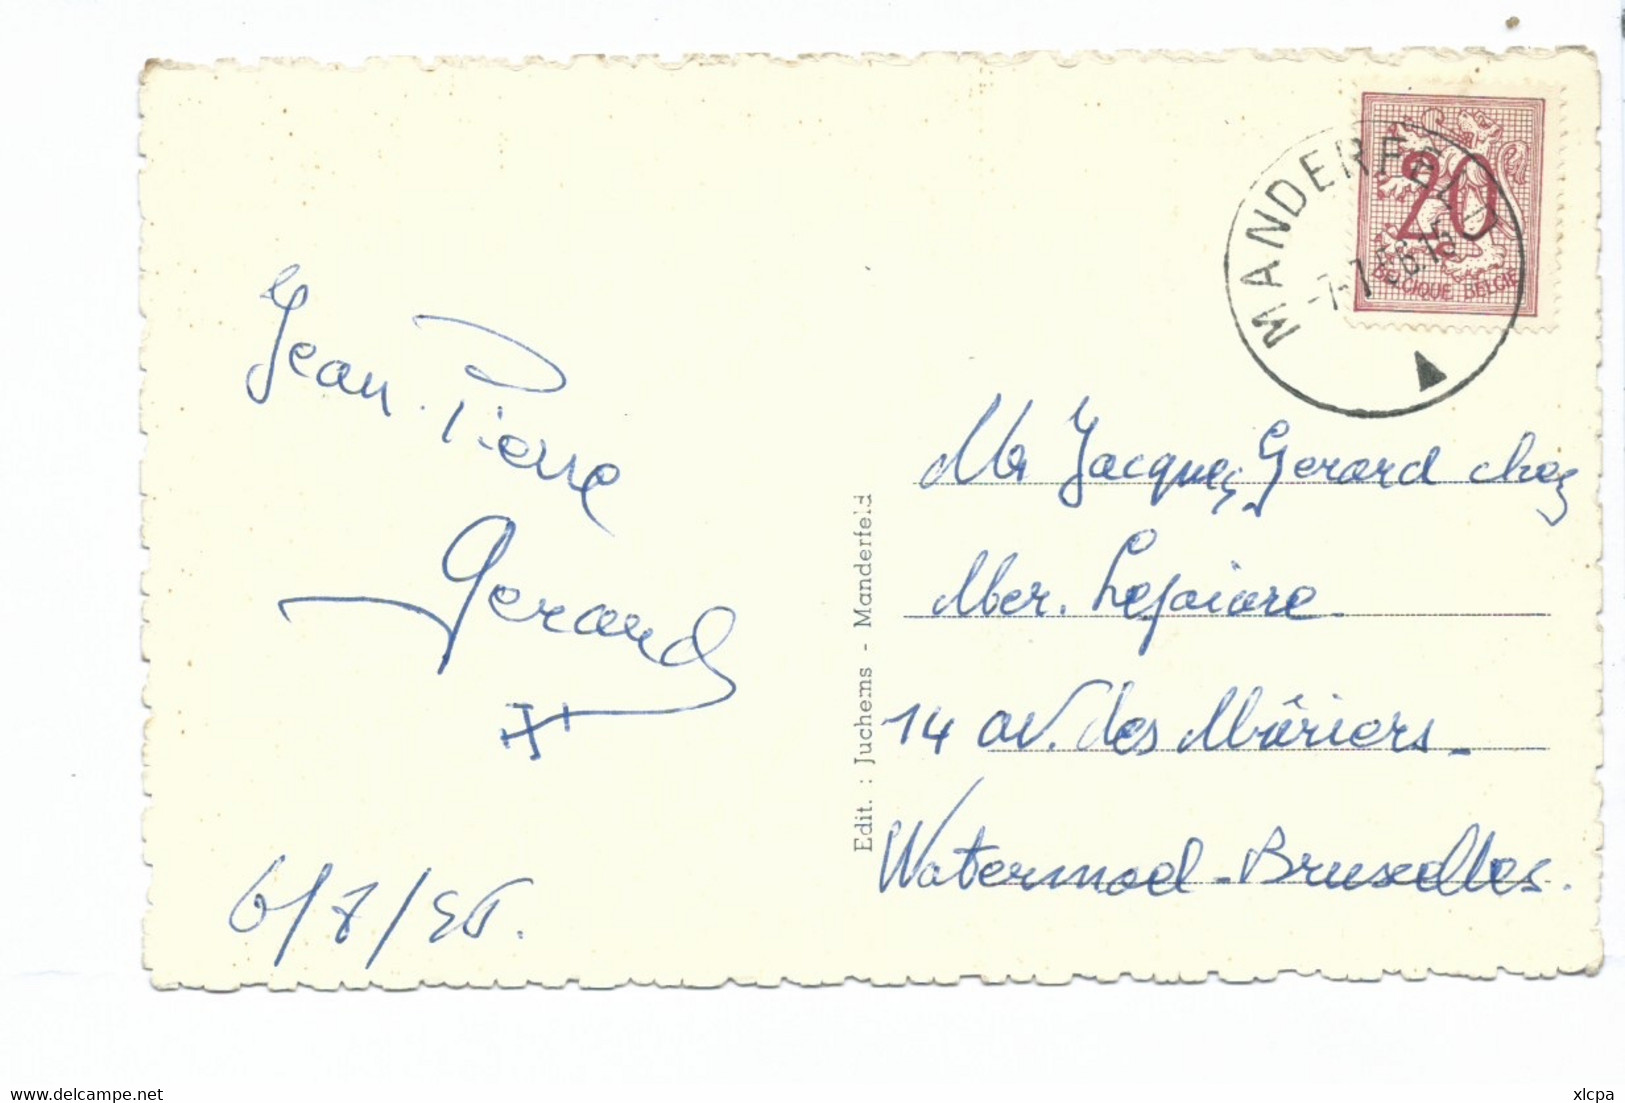 MANDERFELD
-7-7 56.15
20
BELGIQUE BELGIE
Jean-Pierre
Gerard
6/7/56.
Edit. : Juchems - Manderfeld
Mr Jacques Gerard chez
Mer. Lejaiare
14 av. des Mûriers
Watermael-Bruxelles.
www.delcampe.net
xlcpa